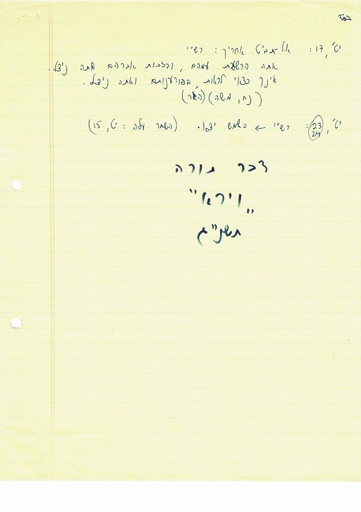 בס"ד
י"ט, 17: אל-תביט אחריך: רש"י
אתה הרשעת עמהם, ובזכות אברהם אתה ניצל.
אינך כדאי לראות בפורענותם ואתה ניצל.
(נח, משה)
י"ט, 23/24: רש"י ← השמש יצא. (השחר עלה: יט, 15)
דבר תורה
"וירא"
תשנ"ג